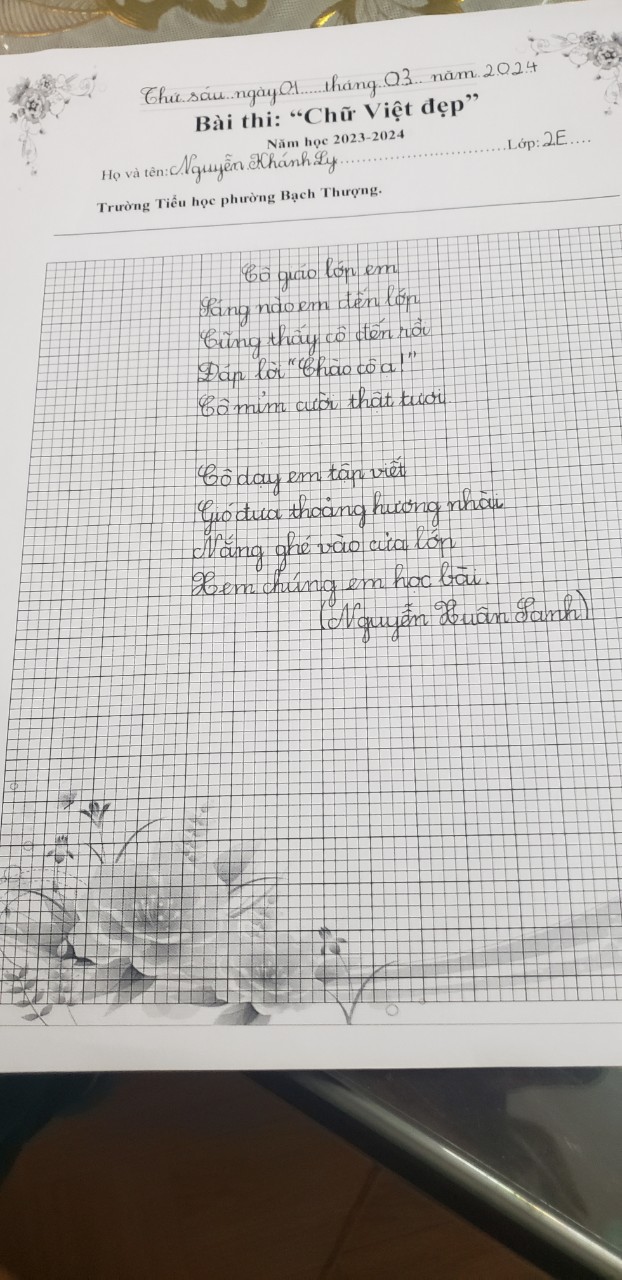 Thứ sáu ngày 01 tháng 03 năm 2024
Bài thi: “Chữ Việt đẹp”
Năm học 2023-2024
Họ và tên: Nguyễn Khánh Ly Lớp: 2E
Trường Tiểu học phường Bạch Thượng.
Cô giáo lớp em
Sáng nào em đến lớp
Cũng thấy cô đến rồi
Đáp lời "Chào cô ạ!"
Cô mỉm cười thật tươi.
Cô dạy em tập viết
Gió đưa thoảng hương nhài
Nắng ghé vào cửa lớp
Xem chúng em học bài.
(Nguyễn Xuân Sanh)